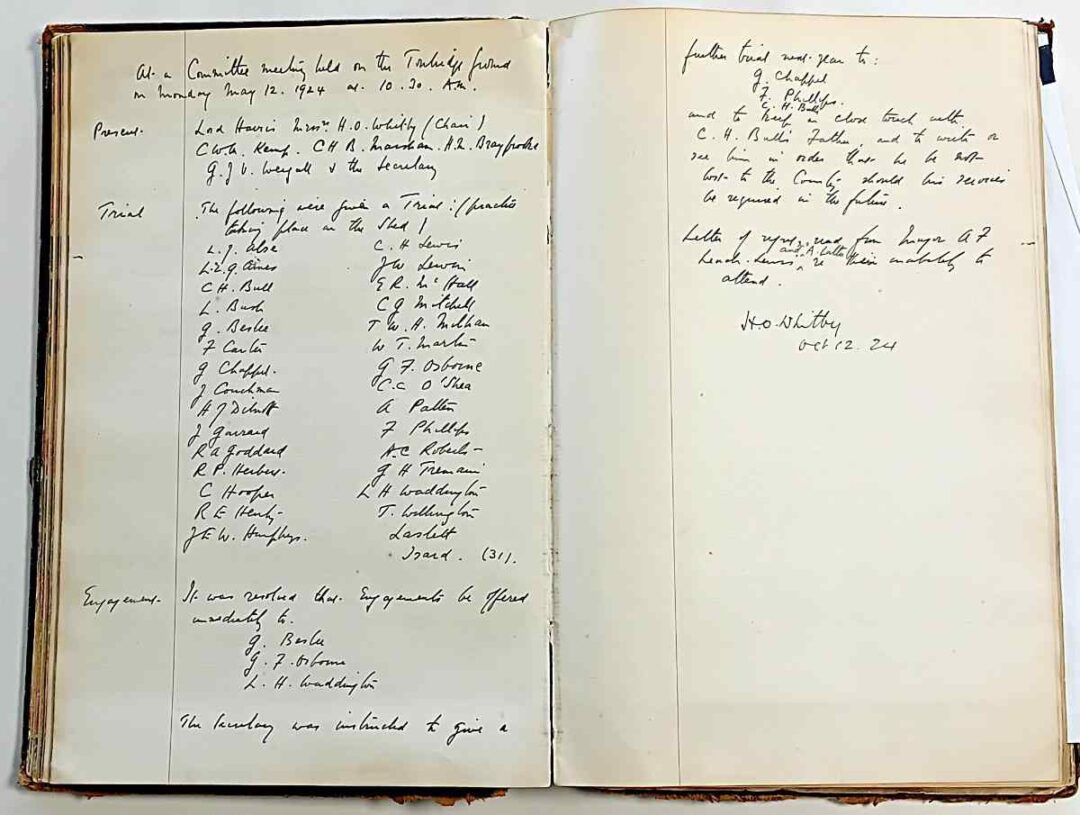 At a Committee meeting held on the Tonbridge Ground
on Monday May 12. 1924 at 10.30. A.M.
Present. Lord Harris Messrs H.O. Whitby (Chair)
C.W.H. Kemp. C H B. Marsham. A.L. Braybrooke
G.J.V. Weigall & the Secretary
Trial The following were given a Trial: (practice
taking place in the Shed)
L.J.
L.E.G. Ames
C H. Bull
L. Bush
G. Beslee
F Carter
G Chappel.
J Couchman
A J Dilnott
J Garrard
R A Goddard
R P. Herbert.
C Hooper
R E Henly
J E W. Humphrys.
C. H Lewis
J W Lewin
E R. McHall
C G Mitchell
T. W. H.
W T. Martin
G F. Osborne
C.C. O'Shea
A Patten
F Phillips
A.C Roberts
G H Tremain
L H Waddington
T. Willington
Laslett
Isard. (31).
Engagement. It was resolved that Engagements be offered
immediately to.
G. Beslee
G. F. Osborne
L. H. Waddington
The Secretary was instructed to give a
further trial next year to:
G. Chappel
F. Phillips.
C. H. Bull
and to keep in close touch with
C. H. Bull's Father, and to write or
see him in order that he be not
lost to the County should his services
be required in the future.
Letter of regret, read from Major A F
and A Luttre
Leach-Lewis, re their inability to
attend.
H.O. Whitby
Oct 12. 24